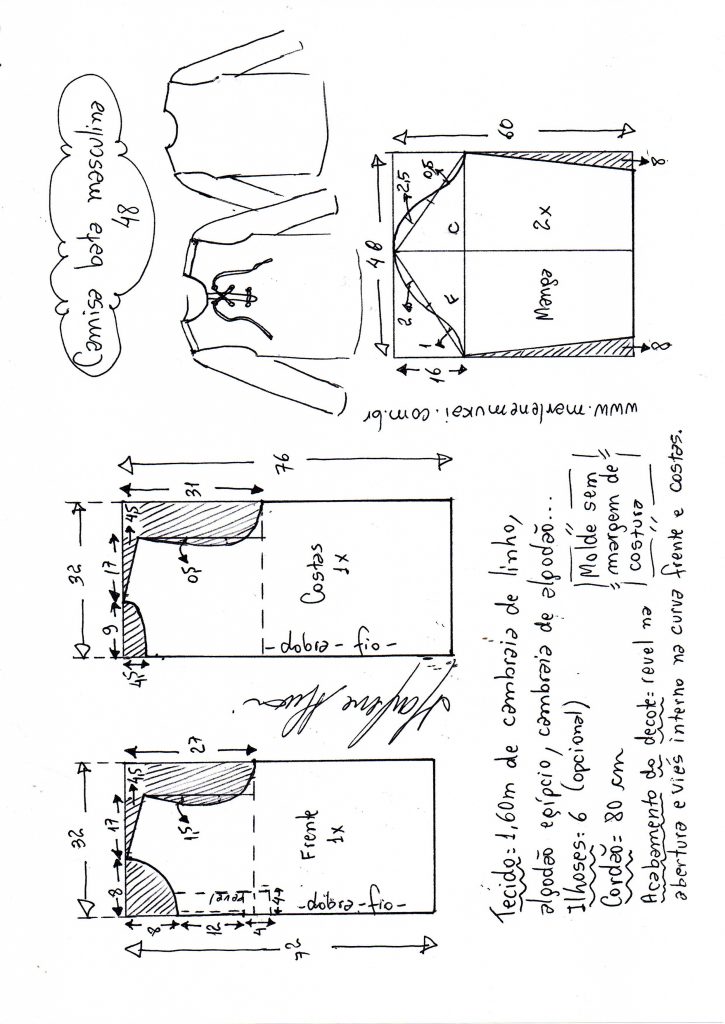 Camisa bata masculina
48
60
48
2,5
0,5
2
1
16
F
C
Manga
2x
8
8
www.marlenemukai.com.br
32
9
17
4,5
4,5
0,5
31
76
Costas
1x
-fio-
-dobra-
32
8
17
4,5
1,5
27
8
12
4
4
72
revel
Frente
1x
-fio-
-dobra-
Tecido: 1,60m de cambraia de linho,
algodão egípcio, cambraia de algodão...
Ilhoses: 6 (opcional)
Cordão: 80 cm
Acabamento do decote: revel na
abertura e viés interno na curva frente e costas.
Molde sem
margem de
costura